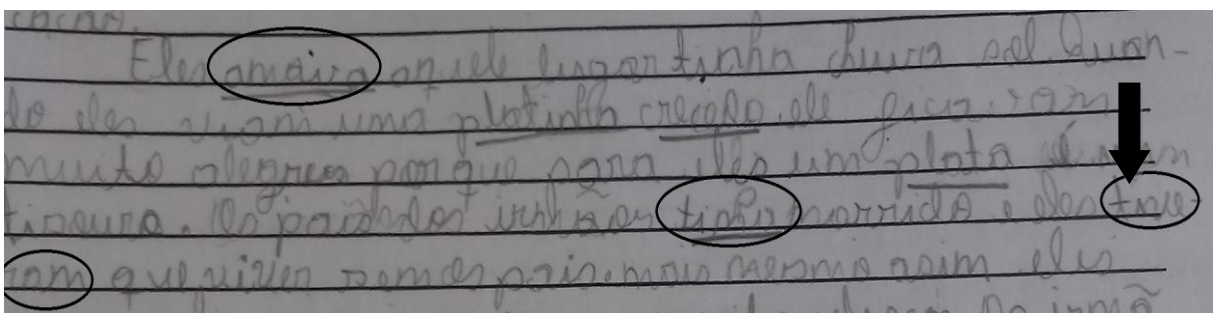 Eles amaiva aquele lugar tinha chuva sol Quan-
do eles viam uma platinha crecedo ele ficavam
muito alegres porque para eles um plata é um
tisouro. Os pais deles tinha morrido e eles tive-
ram que viver sem os pais. mais mesmo asim eles